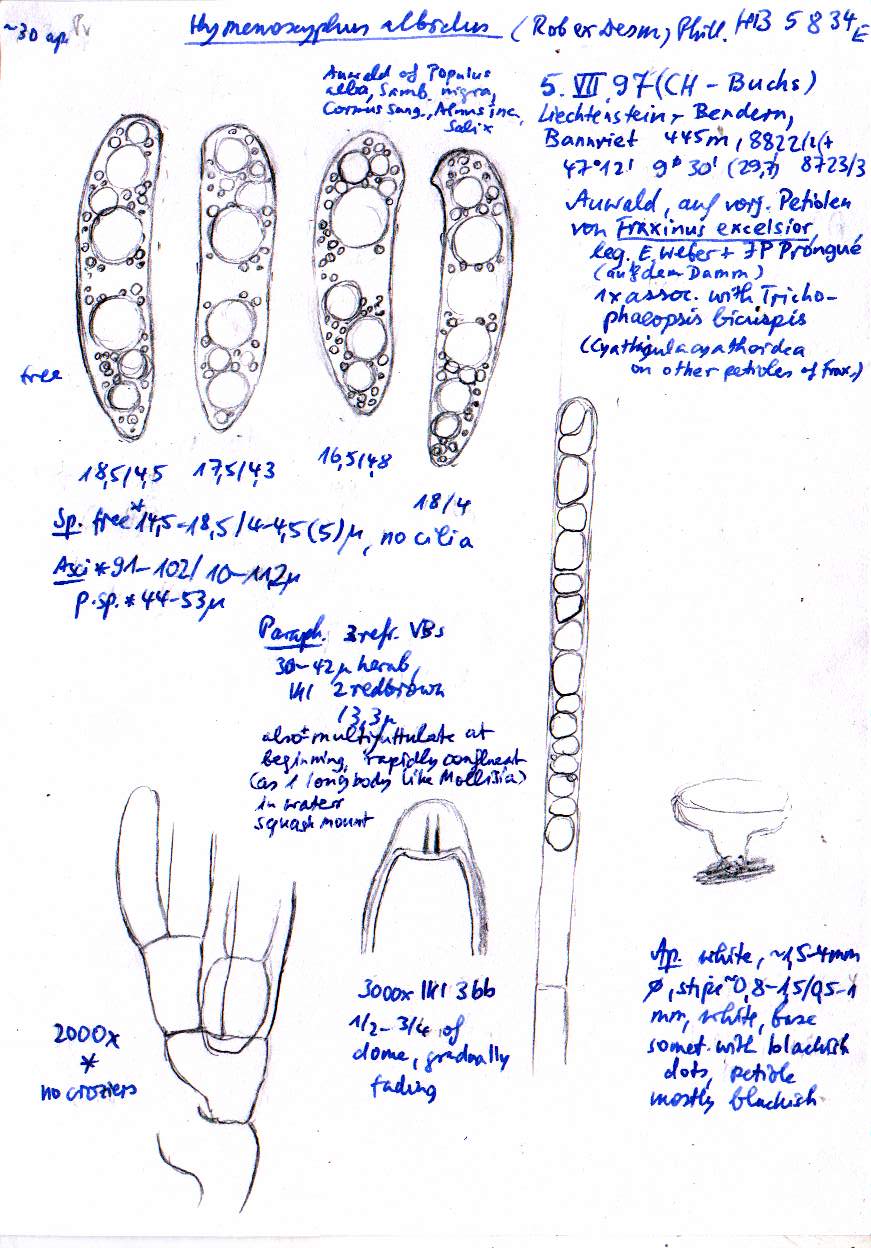 ~30 ap.
Hymenoscyphus albidus (Rob ex Desm) Phill. HB 5834E
Auwald of Populus
alba, Samb. nigra,
Cornus sang., Alnus inc.,
Salix
5. VII. 97 (CH - Buchs)
Liechtenstein, Bendern,
Bannriet 445m, 8822/2/4
47°12' 9°30' 8723/3
Auwald, auf vorj. Petiolen
von Fraxinus excelsior,
leg. E. Weber + JP Prongué
(auf dem Damm)
1x assoc. with Tricho-
phaeopsis bicuspis
(Cyathicula cyathoidea
on other petioles of Frax.)
free
18,5/4,5 17,5/4,3 16,5/4,8
18/4
Sp. free *14,5-18,5/4-4,5(5)µ, no cilia
Asci *91-102/10-11,2µ
p.sp. *44-53µ
Paraph. refr. VBs
30-42µ herab,
IKI 2 redbrown
/3,3µ
also ± multiguttulate at
beginning, rapidly confluent
(as 1 long body like Mollisia)
in water
squash mount
3000x IKI 3bb
1/2 - 3/4 of
dome, gradually
fading
2000x
*
no croziers
Ap. white, ~1,5-4mm
ø, stipe ~0,8-1,5/0,5-1
mm, white, base
somet. with blackish
dots, petiole
mostly blackish